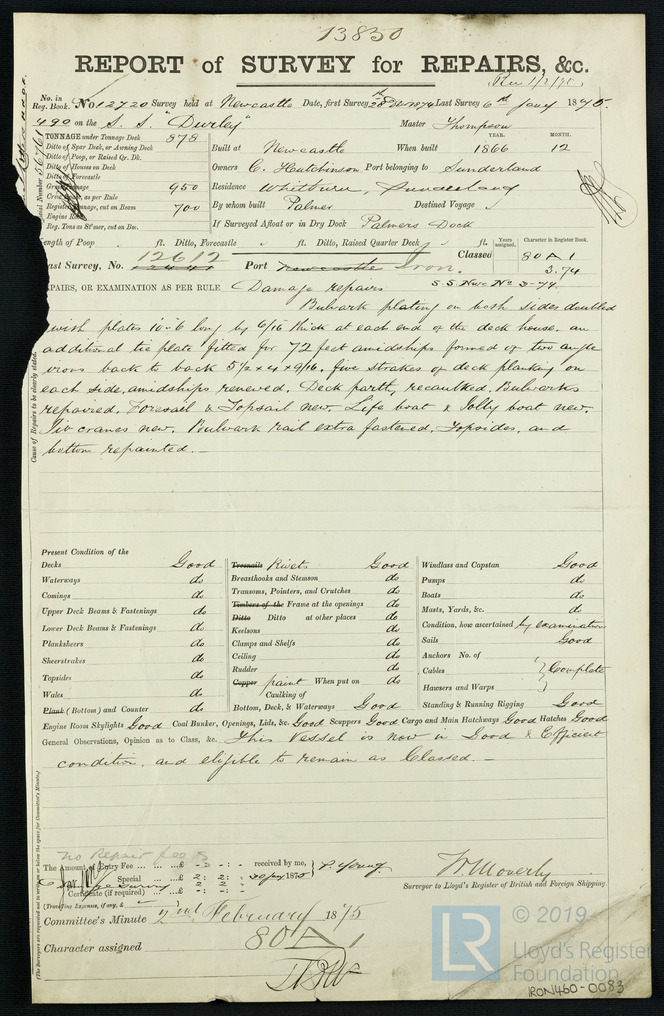 13850
REPORT of SURVEY for REPAIRS, &c.
Rec 1/2/75
No. in Reg. Book. No 12720 Survey held at Newcastle Date, first Survey 28th Decr 1874 Last Survey 6th Jany 1875.
490 on the S. S. "Durley" Master Thompson
TONNAGE under Tonnage Deck 878
Ditto of Spar Deck, or Awning Deck
Ditto of Poop, or Raised Qr. Dk.
Ditto of Houses on Deck
Ditto of Forecastle
Gross Tonnage 950
Crew Space, as per Rule
Register Tonnage, cut on Beam 700
Engine Room
Reg. Tons as St'mer, cut on Bm.
YEAR. MONTH.
Built at Newcastle When built 1866 12
Owners C. Hutchinson Port belonging to Sunderland
Residence Whitburn, Sunderland
By whom built Palmer Destined Voyage
If Surveyed Afloat or in Dry Dock Palmers Dock
Length of Poop ft. Ditto, Forecastle ft. Ditto, Raised Quarter Deck ft.
Years assigned. Character in Register Book.
Classed 80 A 1
3.74
Last Survey, No. 12612 Port Newcastle Iron.
S.S. Nwc No 3-74
REPAIRS, OR EXAMINATION AS PER RULE Damage repairs
Bulwark plating on both sides doubled
with plates 10.6 long by 6/16 thick at each end of the deck house, an
additional tie plate fitted for 72 feet amidships formed of two angle
irons back to back 5 1/2 x 4 x 9/16. five strakes of deck planking on
each side, amidships renewed. Deck partly recaulked, Bulwarks
repaired. Foresail & Topsail new. Life boat & Jolly boat new.
Two cranes new. Bulwark rail extra fastened. Topsides, and
bottom repainted.—
Cause of Repairs to be clearly stated.
Present Condition of the
Decks Good
Waterways do
Comings do
Upper Deck Beams & Fastenings do
Lower Deck Beams & Fastenings do
Planksheers do
Sheerstrakes do
Topsides do
Wales do
Plank (Bottom) and Counter do
Treenails Rivets Good
Breasthooks and Stemson do
Transoms, Pointers, and Crutches do
Timbers of the Frame at the openings do
Ditto Ditto at other places do
Keelsons do
Clamps and Shelfs do
Ceiling do
Rudder do
Copper paint When put on do
Caulking of
Bottom, Deck, & Waterways Good
Windlass and Capstan Good
Pumps do
Boats do
Masts, Yards, &c. do
Condition, how ascertained by examination
Sails Good
Anchors No. of
Cables } Complete
Hawsers and Warps
Standing & Running Rigging Good
Engine Room Skylights Good Coal Bunker, Openings, Lids, &c. Good Scuppers Good Cargo and Main Hatchways Good Hatches Good
General Observations, Opinion as to Class, &c. This Vessel is now in Good & Efficient
condition, and eligible to remain as Classed.—
(The Surveyors are requested not to write on or below the space for Committee's Minute.)
No Repair fee
The Amount of Entry Fee ... £ - : - : - received by me,
Special ... £ 2 : 2 : - 30 Jany 1875 P. Young
Certificate (if required) ...
(Travelling Expenses, if any, £
W. Moverly
Surveyor to Lloyd's Register of British and Foreign Shipping.
Committee's Minute 2nd February 1875
Character assigned 80 A 1
LR
© 2019
Lloyd's Register
Foundation
IRON460-0083